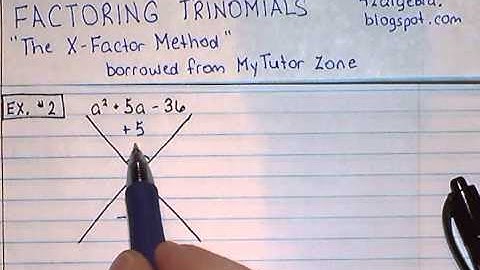 FACTORING TRINOMIALS
"The X-Factor Method"
borrowed from MyTutor Zone
blogspot.com
EX. #2
a² + 5a - 36
+5
-